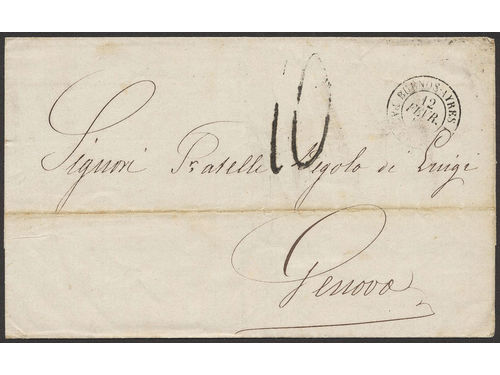 BUENOS-AYRES
12
FEVR.
10
Signori Fratelli Segolo di Luigi
Genova